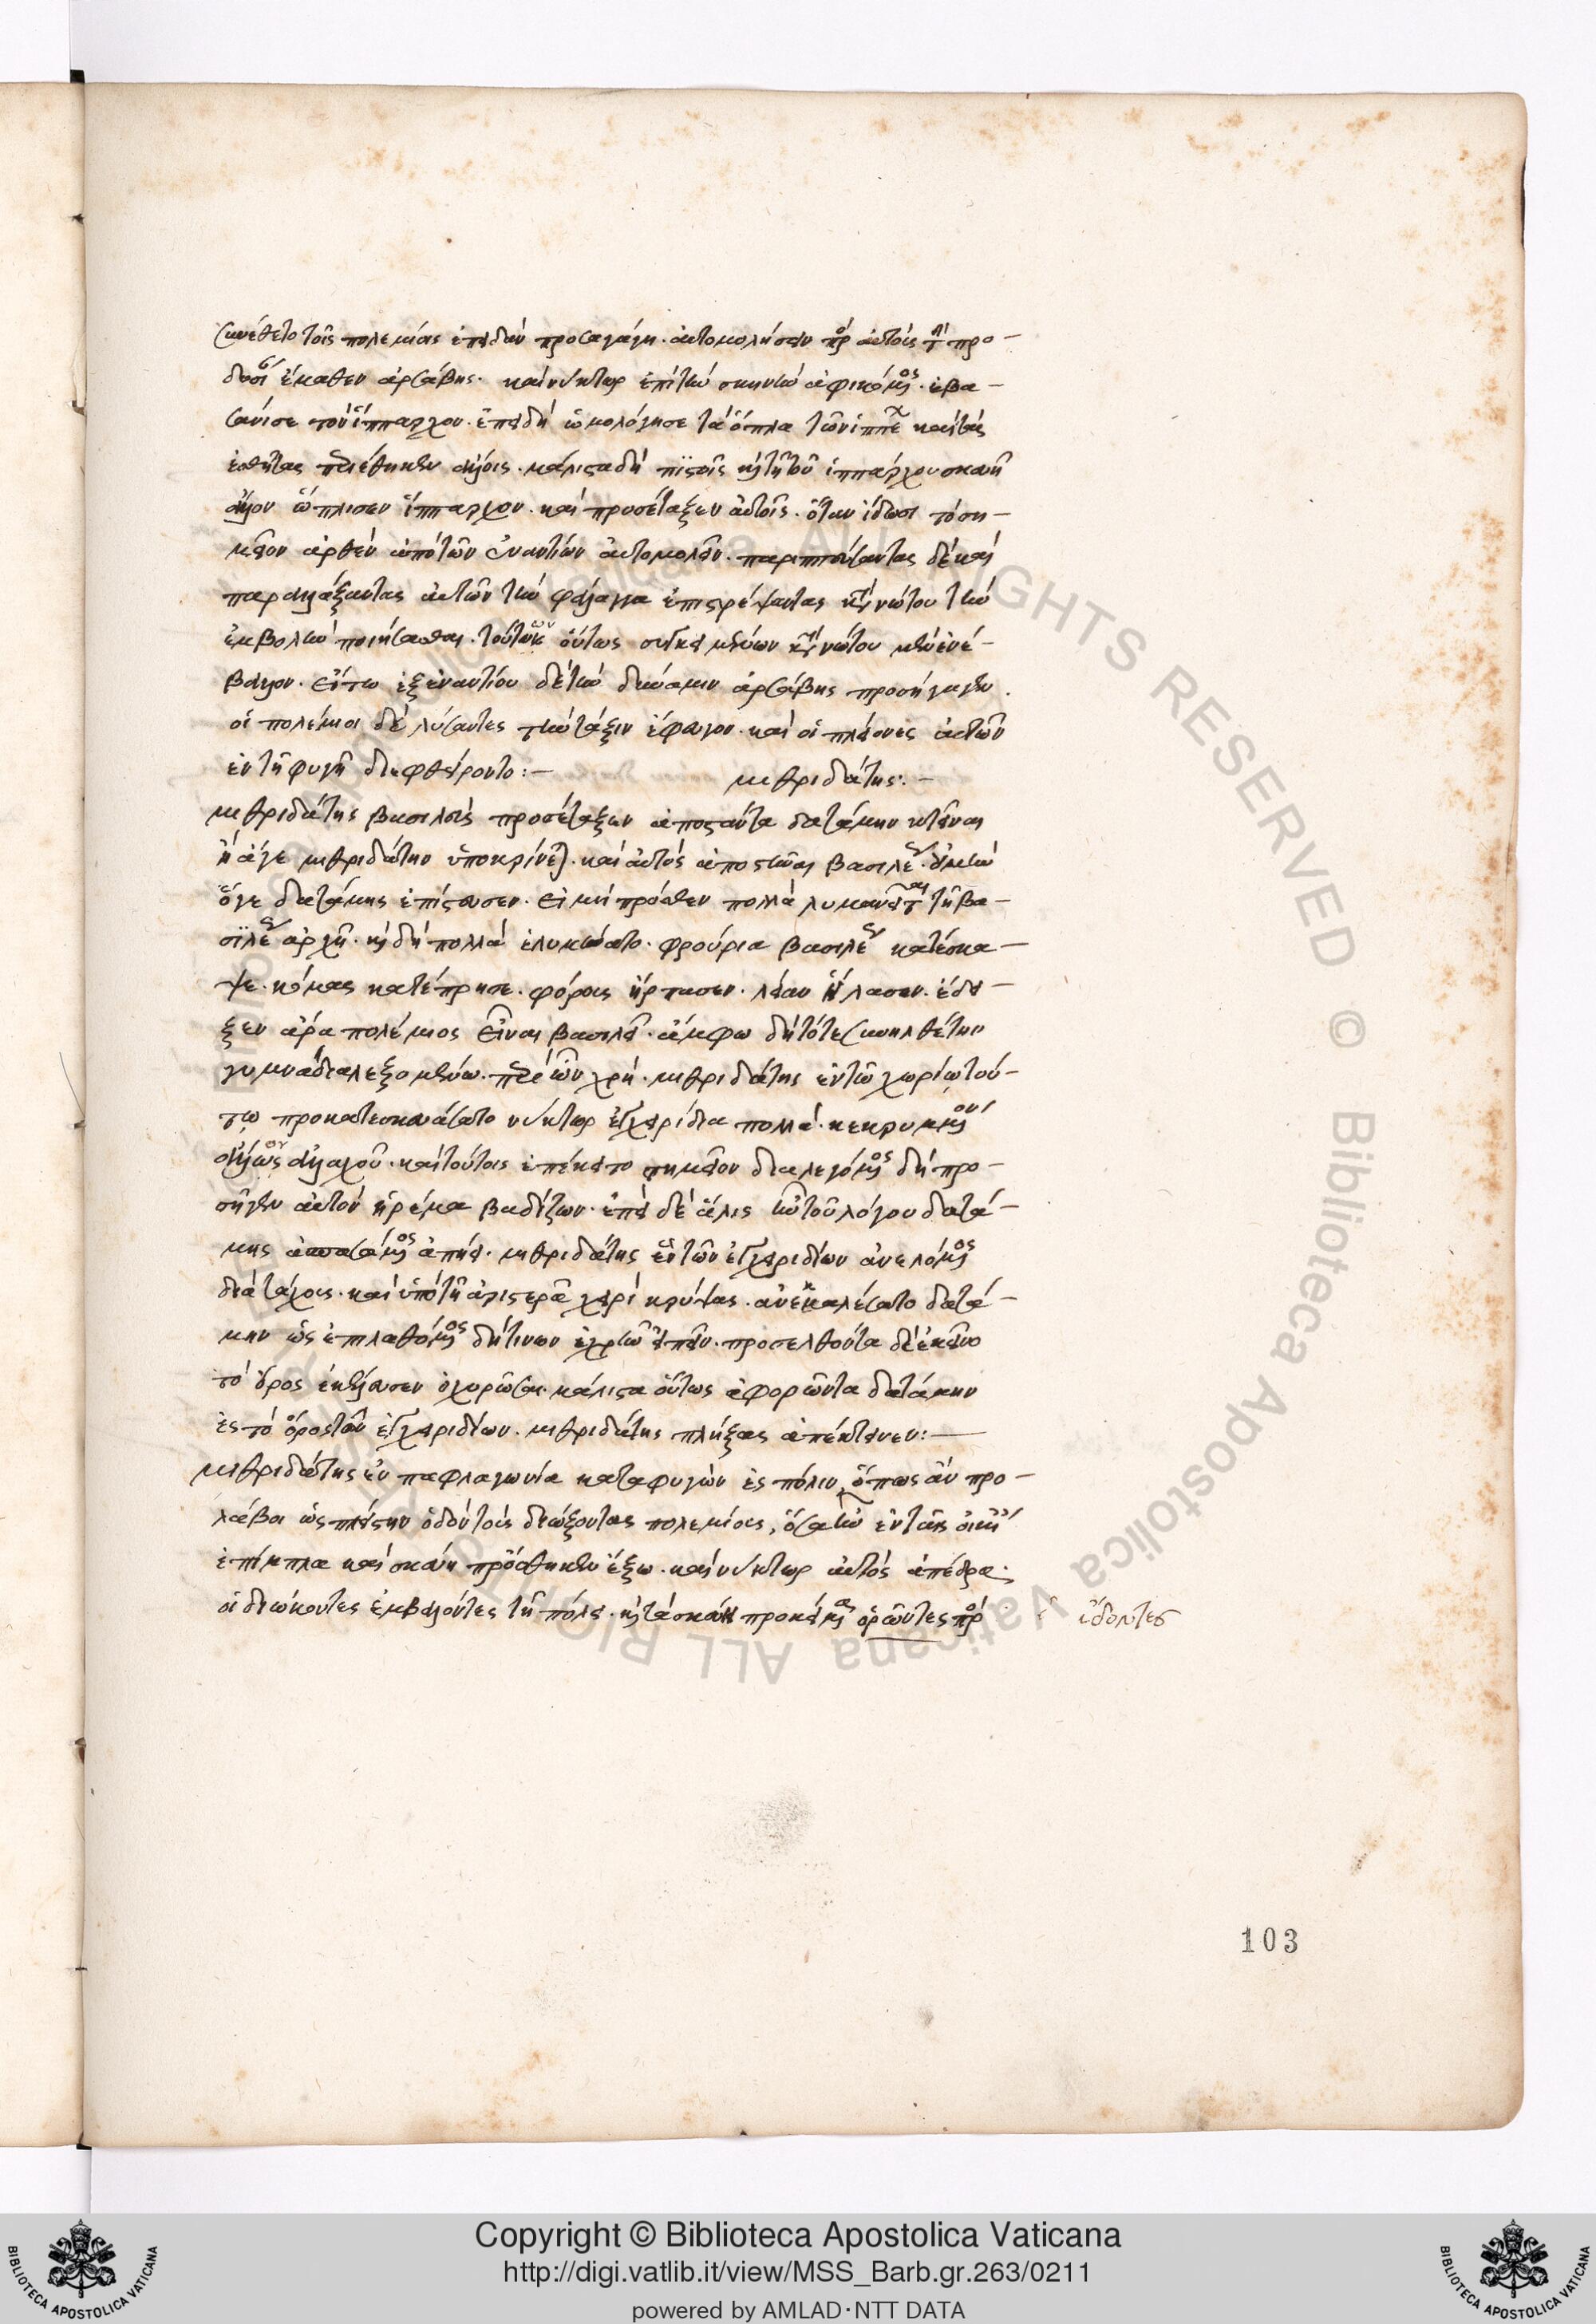 συνέθετο τοῖς πολεμίοις ἐπειδὰν προσαγάγῃ. αὐτομολήσειν πρὸς αὐτούς τὴν προ-
δοσίαν ἔμαθεν ἀρσάβης. καὶ νύκτωρ ἐπὶ τὴν σκηνὴν ἀφικόμενος. ἐβα-
σάνισε τὸν ἵππαρχον. ἐπειδὴ ὡμολόγησε τὰ ὅπλα τῶν ἱππέων καὶ τὰς
ἐσθῆτας περιέθηκεν ἄλλοις. μάλιστα δὴ πιστοῖς καὶ τῇ τοῦ ἱππάρχου σκευῇ
ἄλλον ὥπλισεν ἵππαρχον. καὶ προσέταξεν αὐτοῖς. ὅταν ἴδωσι τὸ ση-
μεῖον ἀρθὲν ἀπὸ τῶν ἐναντίων αὐτομολεῖν. παριππεύσαντας δὲ καὶ
παραλλάξαντας αὐτῶν τὴν φάλαγγα ἐπιστρέψαντας κατὰ νώτου τὴν
ἐμβολὴν ποιήσασθαι. τούτων οὕτως συγκειμένων κατὰ νώτου μὲν ἐνέ-
βαλλον. οὕτω ἐξ ἐναντίου δὲ τὴν δύναμιν ἀρσάβης προσήγαγεν.
οἱ πολέμιοι δὲ λύσαντες τὴν τάξιν ἔφευγον. καὶ οἱ πλείονες αὐτῶν
ἐν τῇ φυγῇ διεφθείροντο:— μιθριδάτης:—
μιθριδάτης βασιλεὺς προσέταξεν ἀποστάντα δατάμην κτεῖναι
ἢ ἄγειν μιθριδάτην ὑποκρίνεται. καὶ αὐτὸς ἀποστῆναι βασιλέως. ἀλλ' οὐ
ὅγε δατάμης ἐπίστευσεν. εἰ μὴ πρόσθεν πολλὰ λυμανεῖται τῇ βα-
σιλέως ἀρχῇ. καὶ δὴ πολλὰ ἐλυμήνατο. φρούρια βασιλέως κατέσκα-
ψε. κώμας κατέπρησε. φόρους ἥρπασεν. λείαν ἤλασεν. ἔδει-
ξεν ἄρα πολέμιος εἶναι βασιλεῖ. ἄμφω δὴ τότε συνηλθέτην
γυμνὰ διαλεξομένω. περὶ ὧν χρή. μιθριδάτης ἐν τῷ χωρίῳ τού-
τῳ προκατεσκευάσατο νύκτωρ ἐγχειρίδια πολλά. κεκρυμμένον
ἄλλως ἀλλαχοῦ. καὶ τούτοις ἐπέκειτο σημεῖον διαλεγόμενος δὴ προ-
σῆγεν αὐτὸν ἠρέμα βαδίζων. ἐπεὶ δὲ ἅλις καὶ τοῦ λόγου δατά-
μης ἀσπασάμενος ἀπῄει. μιθριδάτης ἓν τῶν ἐγχειριδίων ἀνελόμενος
διὰ τάχους. καὶ ὑπὸ τῇ ἀριστερᾷ χειρὶ κρύψας. ἀνεκαλέσατο δατά-
μην ὡς ἐπιλαθόμενος δή τινων ἐχρῆν εἰπεῖν. προσελθόντα δὲ ἐκεῖνο
τὸ ὄρος ἐκέλευσεν ὀχυρῶσαι. μάλιστα οὕτως ἀφορῶντα δατάμην
ἐς τὸ ὄρος τῶν ἐγχειριδίων. μιθριδάτης πλήξας ἀπέκτεινεν:—
μιθριδάτης ἐν παφλαγονίᾳ καταφυγὼν ἐς πόλιν, ὅπως ἂν προ-
λάβοι ὡς πλείστην ὁδὸν τοὺς διώξοντας πολεμίους, ὅσα ἦν ἐν ταῖς οἰκίαις
ἔπιπλα καὶ σκεύη προέθηκεν ἔξω. καὶ νύκτωρ αὐτὸς ἀπέδρα.
οἱ διώκοντες ἐμβαλόντες τῇ πόλει. καὶ τὰ σκεύη προκείμενα ὁρῶντες πρὸ
ἰδόντες
103
Copyright © Biblioteca Apostolica Vaticana
http://digi.vatlib.it/view/MSS_Barb.gr.263/0211
powered by AMLAD·NTT DATA